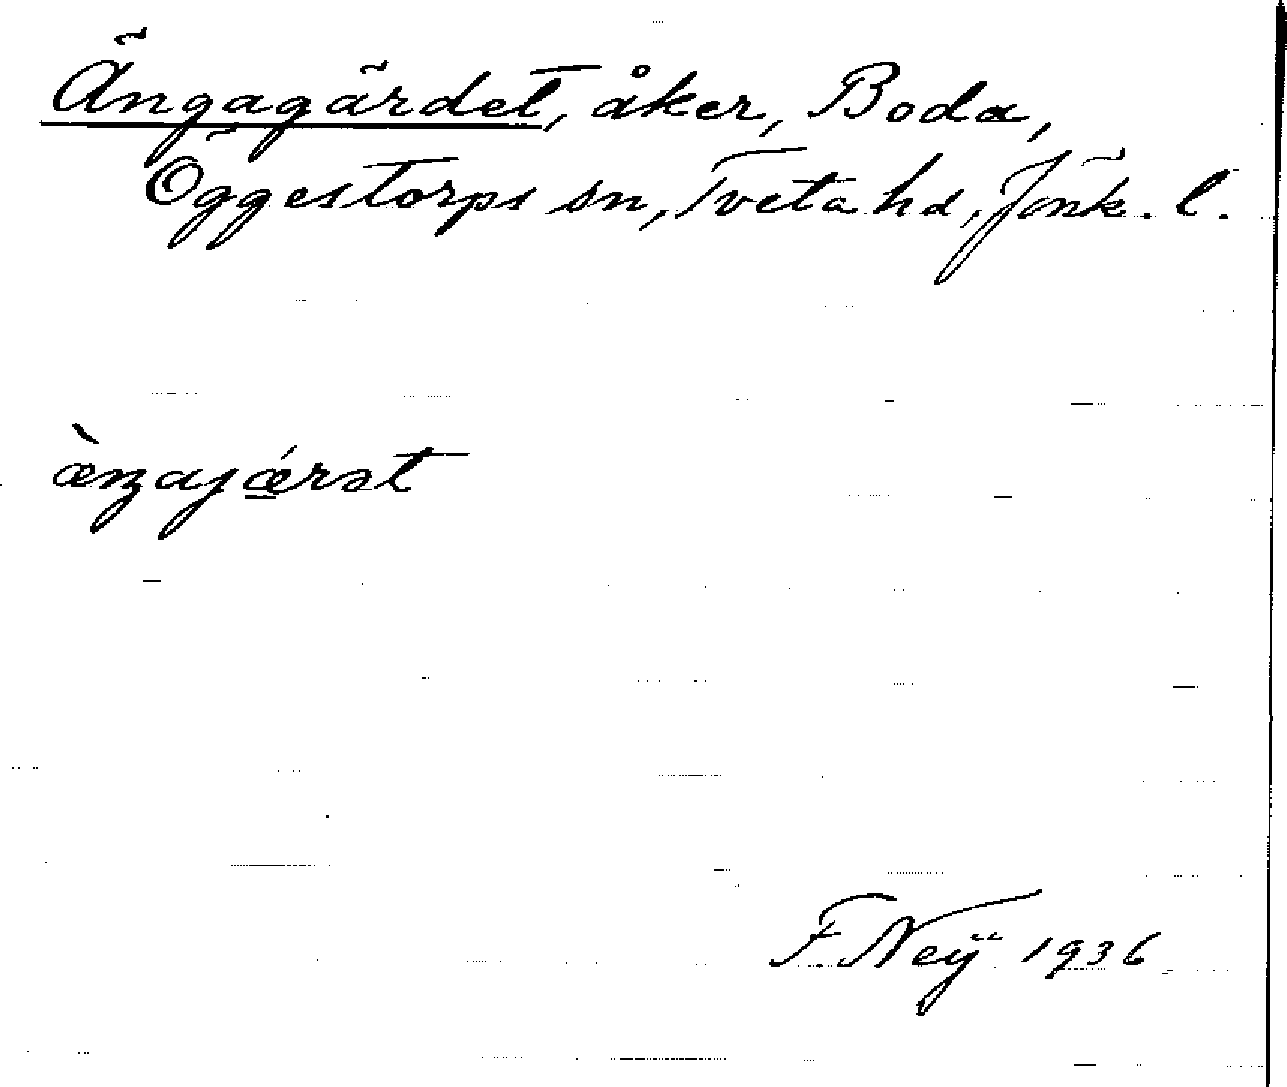 Ängagärdet, åker, Boda,
Öggestorps sn, Tveta hd, Jönk. l.
æ̀ŋajǽrət
F. Neÿ 1936